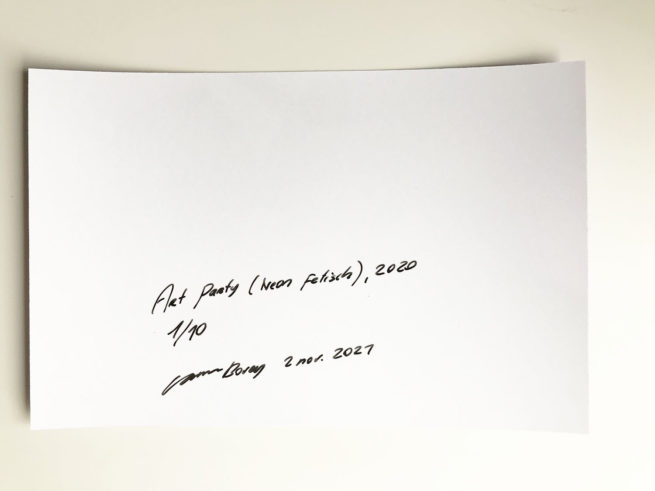 Art Party (Neon Fetisch), 2020
1/10
2 nov. 2021